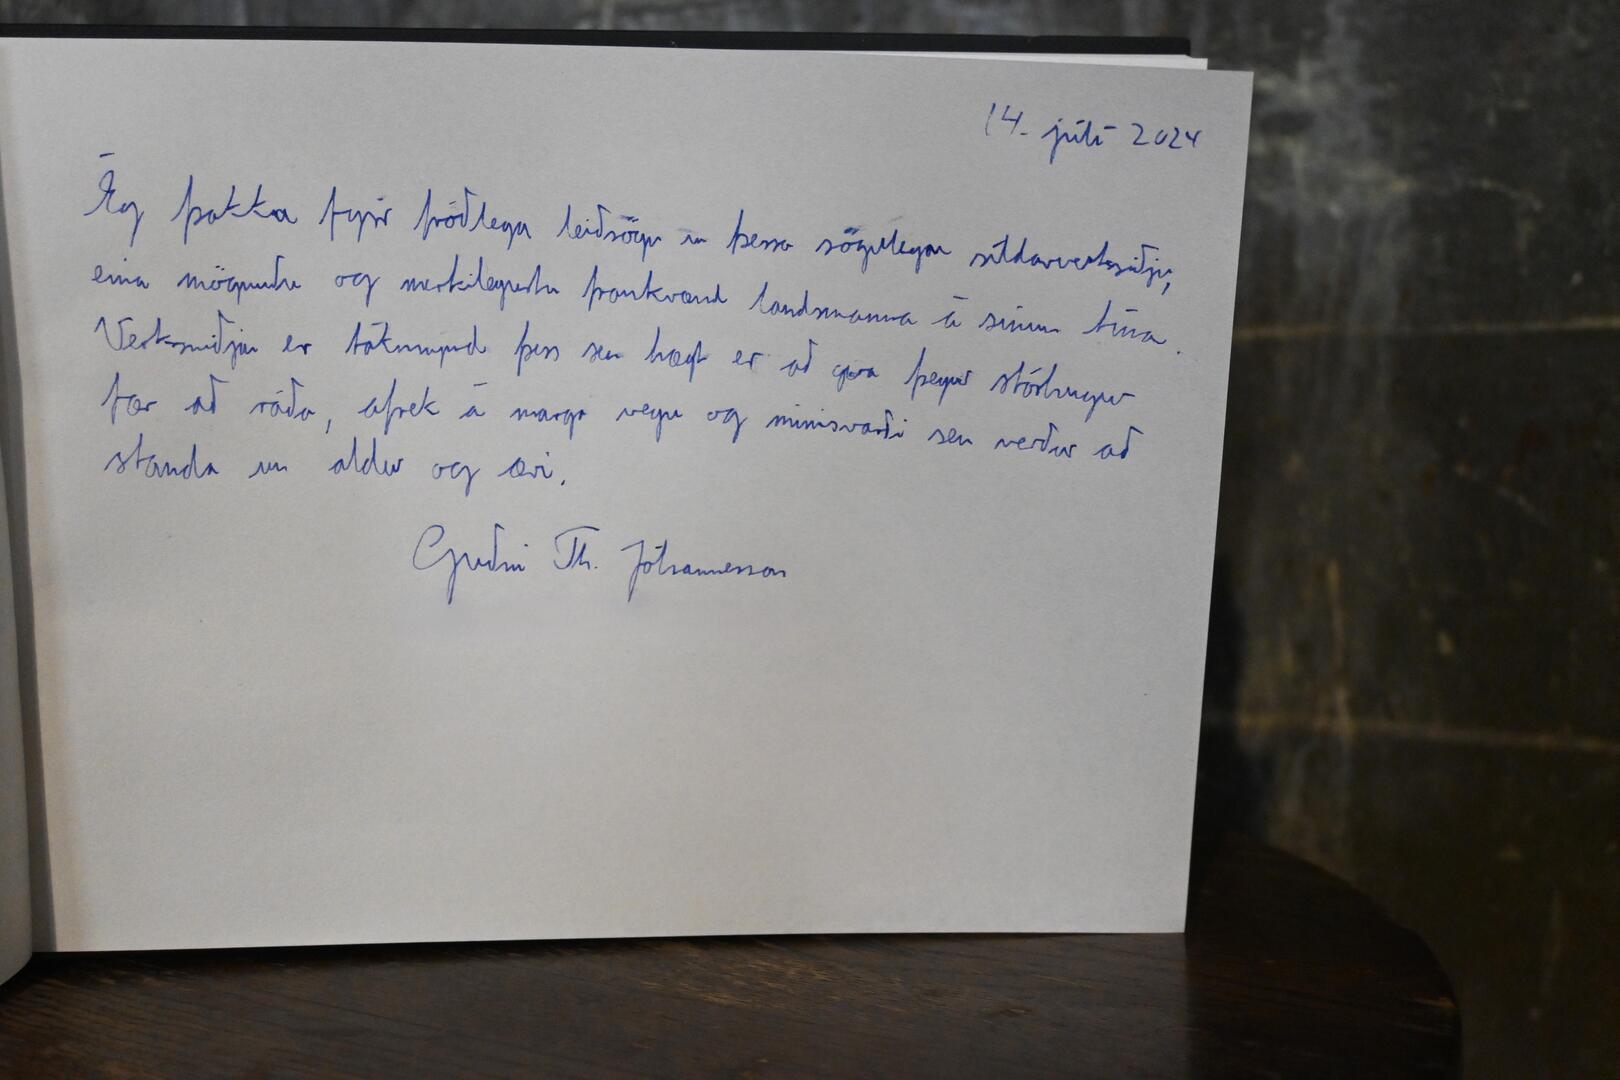 14. júlí 2024
Ég þakka fyrir fróðlega leiðsögn um þessa sögulegu síldarverksmiðju,
eina mögnuðustu og merkilegustu framkvæmd landsmanna á sínum tíma.
Verksmiðjan er táknmynd þess sem hægt er að gera þegar stórhugur
fær að ráða, afrek á marga vegu og minnisvarði sem verður að
standa um aldur og ævi.
Guðni Th. Jóhannesson